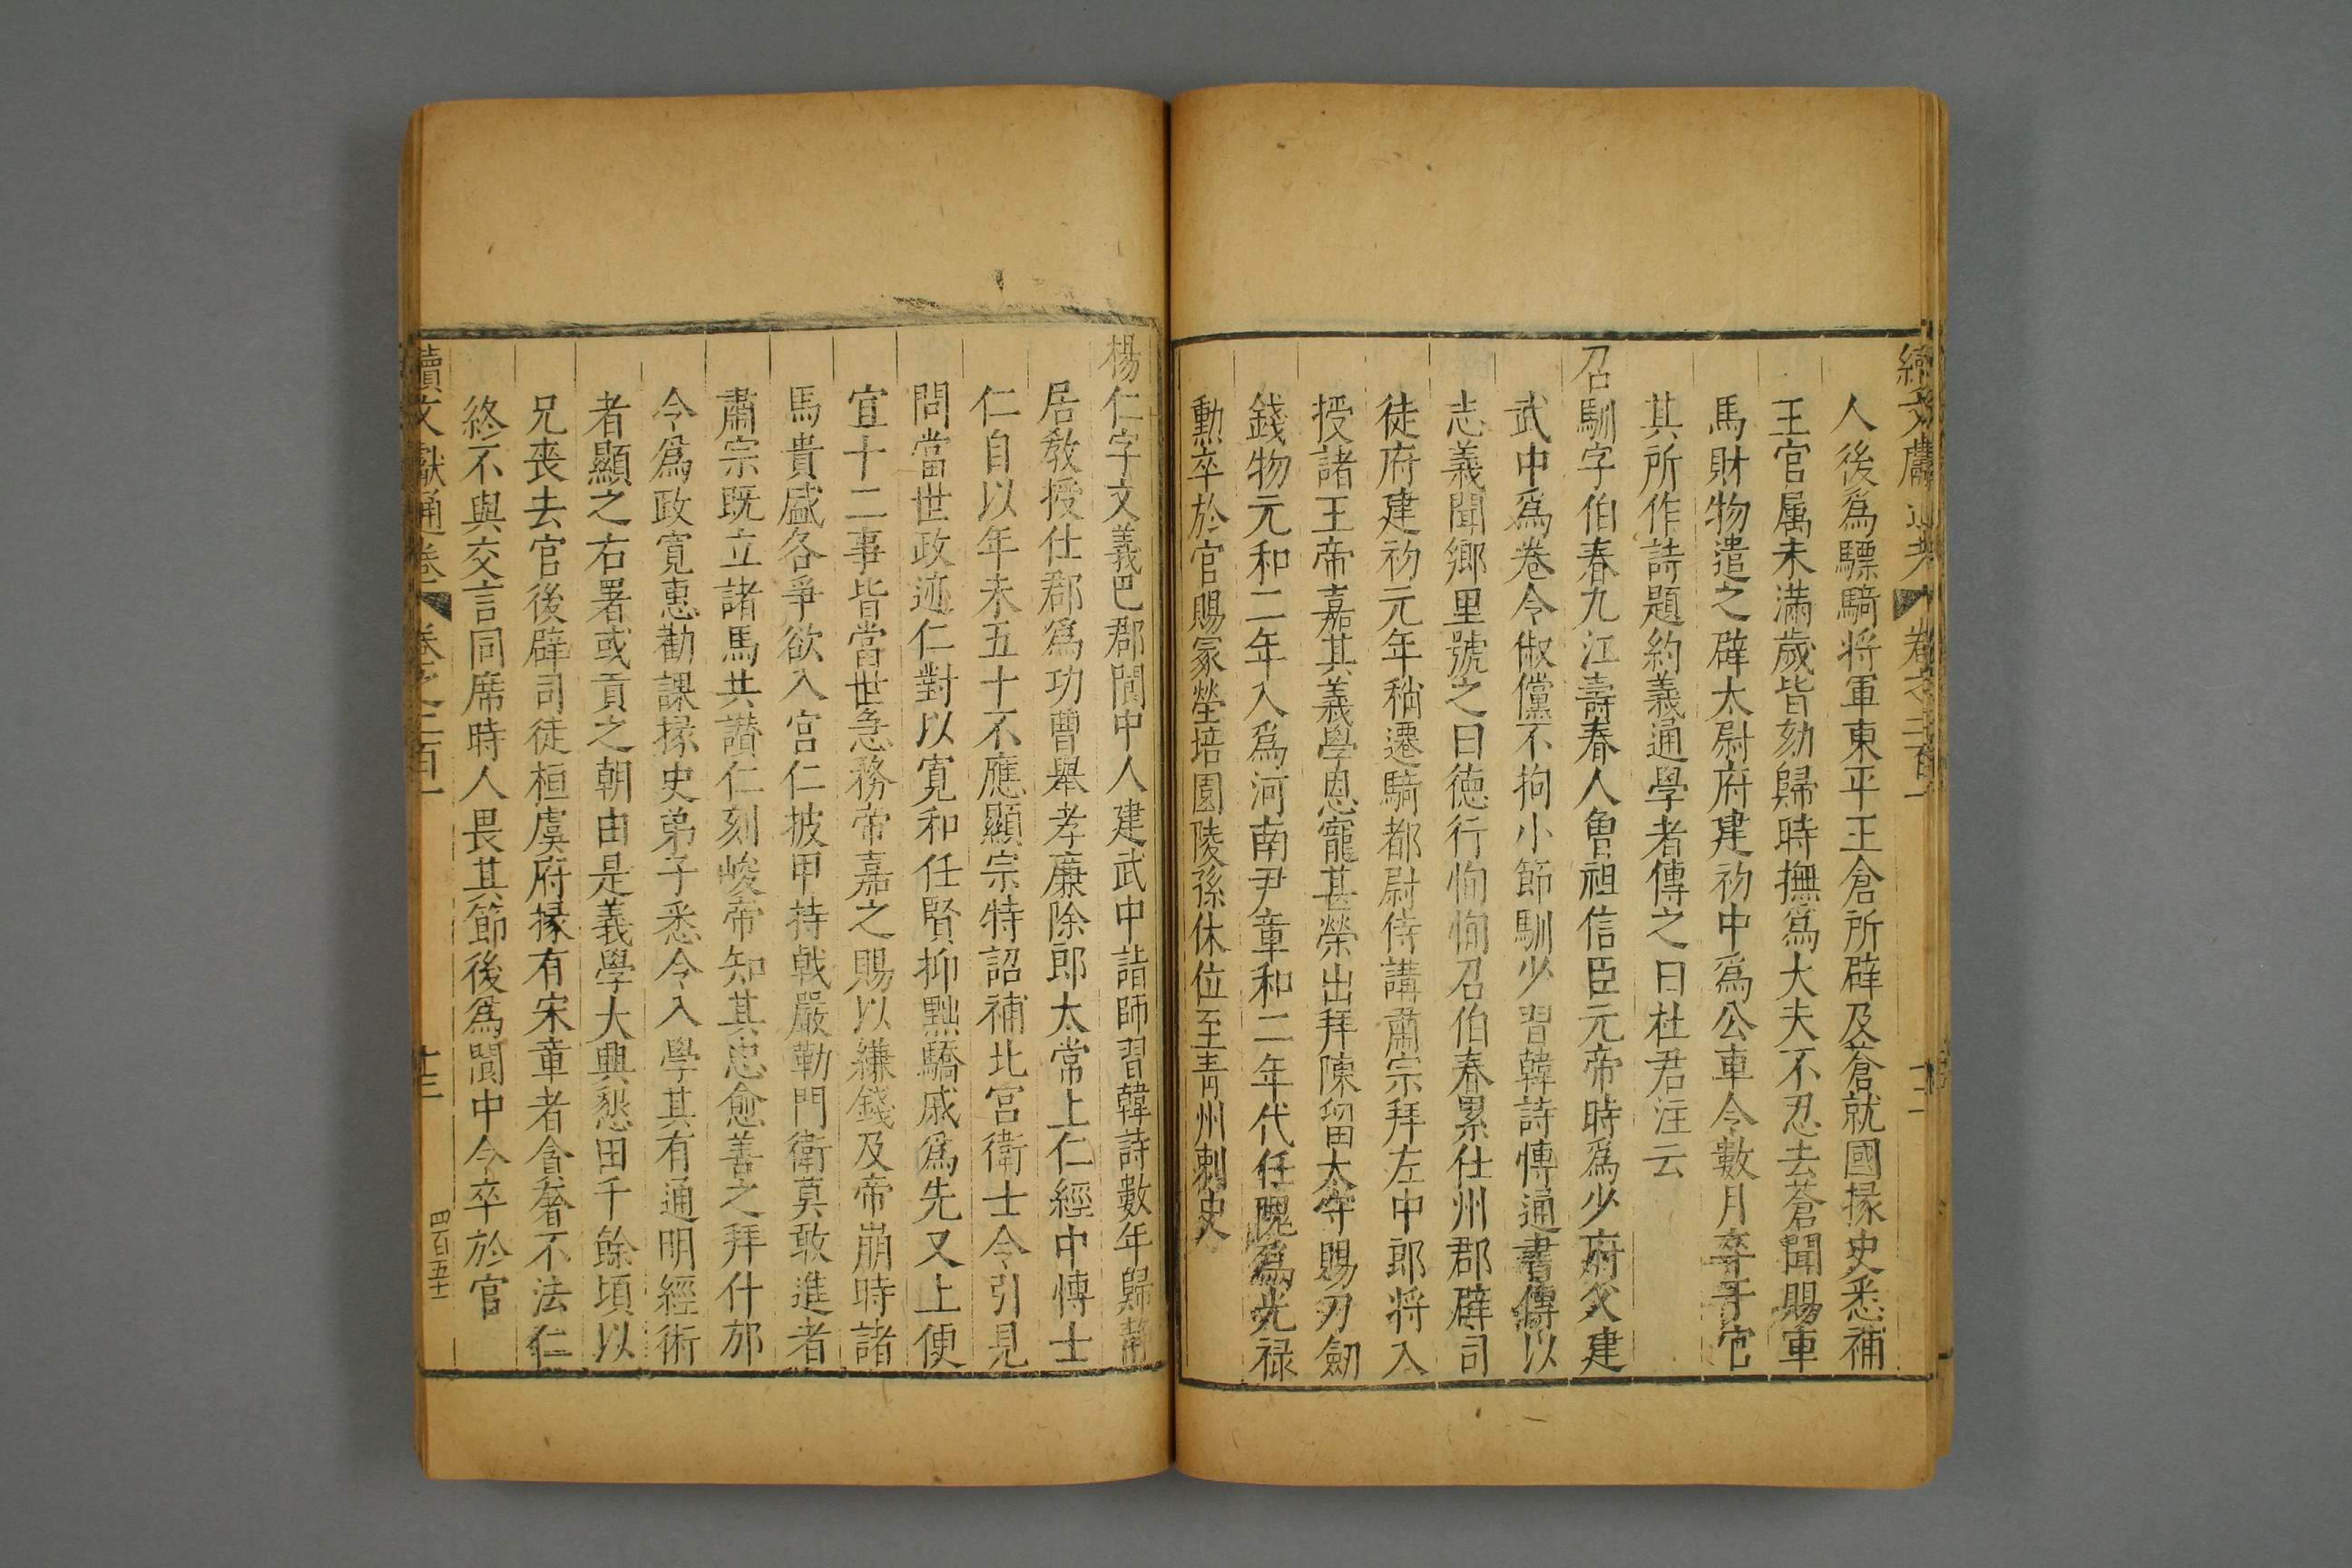 續文獻通考 卷之二百一
人後爲驃騎将軍東平王倉所辟及蒼就國掾史悉補
王官属未滿歲皆劾歸時撫爲大夫不忍去蒼聞賜車
馬財物遣之辟太尉府建初中爲公車令數月卒于官
其所作詩題約義通學者傳之曰杜君注云
召馴字伯春九江壽春人魯祖信臣元帝時爲少府父建
武中爲卷令俶儻不拘小節馴少習韓詩愽通書傳以
志義聞鄉里號之曰徳行恂恂召伯春累仕州郡辟司
徒府建初元年稍遷騎都尉侍講肅宗拜左中郎将入
授諸王帝嘉其義學恩寵甚榮出拜陳留太守賜刃劒
錢物元和二年入爲河南尹章和二年代任隗爲光禄
勳卒於官賜冢塋培園陵孫休位至青州刺史
楊仁字文義巴郡閬中人建武中詣師習韓詩數年歸靜
居教授仕郡爲功曹舉孝廉除郎太常上仁經中愽士
仁自以年未五十不應顯宗特詔補北宮衛士令引見
問當世政迹仁對以寛和任賢抑黜驕戚爲先又上便
宜十二事皆當世急務帝嘉之賜以縑錢及帝崩時諸
馬貴盛各爭欲入宮仁披甲持戟嚴勒門衛莫敢進者
肅宗既立諸馬共譖仁刻峻帝知其忠愈善之拜什邡
令爲政寛惠勸課掾史弟子悉令入學其有通明經術
者顯之右署或貢之朝由是義學大興墾田千餘頃以
兄喪去官後辟司徒桓虞府掾有宋章者貪奢不法仁
終不與交言同席時人畏其節後爲閬中令卒於官
續文獻通考 卷之二百一 十三 四百五十